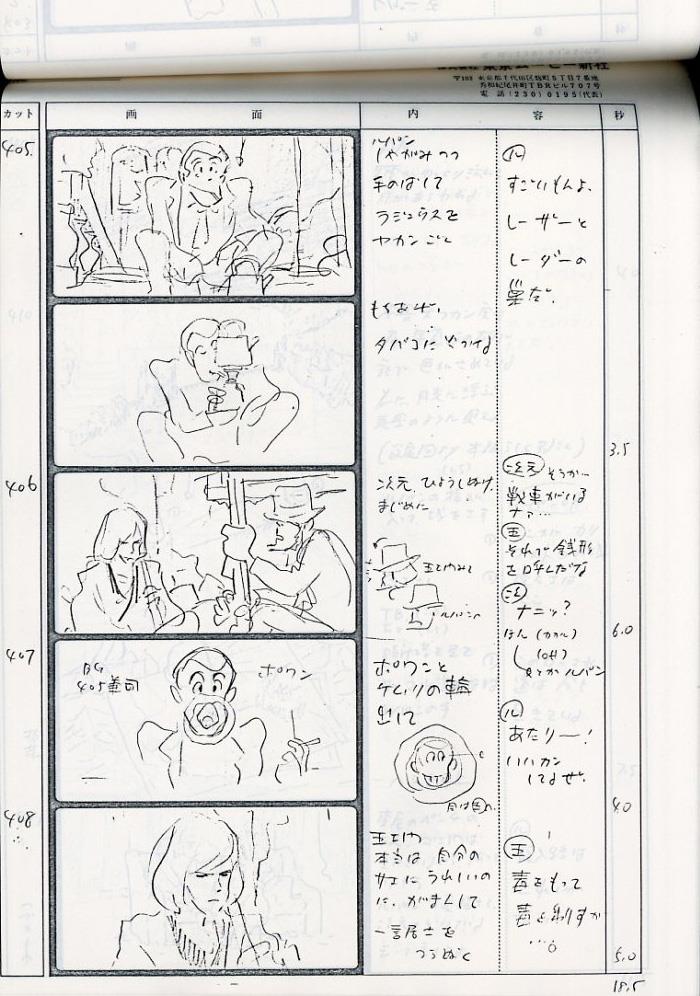 株式会社 東京ムービー新社
〒102 東京都千代田区麹町5丁目7番地
秀和紀尾井町TBRビル707号
電話(230)0195(代表)
カット 画面 内容 秒
405
ルパン
しゃがみつつ
手のばして
ラジュウスを
ヤカンごと
もちあげ、
タバコに火つける
ル
すごいもんよ、
レーザーと
レーダーの
巣だ。
3.5
406
次元 ひょうしぬけ、
まじめに
五エ内みて
ルパンへ
次元 そうか…
戦車がいる
ナァ…
五
それで銭形
を呼んだな
次
ナニッ?
6.0
407
BG
405兼用
ポワン
ポワンと
ケムリの輪
出して
ル
あたりー!
いいカン
してるぜ。
4.0
408
五エ門
本当は自分の
サエにうれしいの
に、がまんして
一言居士を
つらぬく
五
毒をもって
毒を制すか
…。
5.0
18.5